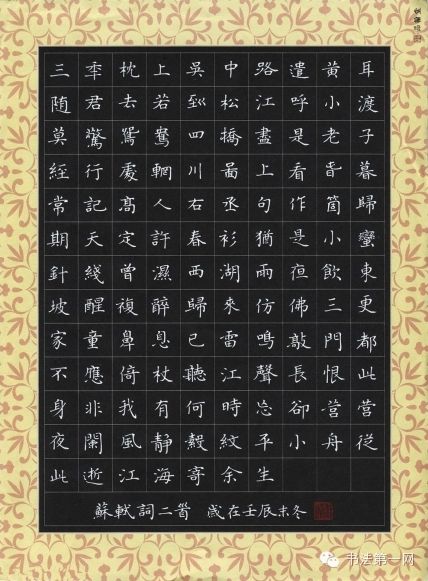 三秊枕上吳中路遣黃耳
随君去若到松江呼小渡
莫驚鴛鷺四橋盡是老子
經行處輞川啚上看旾暮
常記髙人右丞句作箇歸
期天定許春衫猶是小蠻
針綫曾濕西湖雨亱飲東
坡醒複醉歸來仿佛三更
家童鼻息已雷鳴敲門都
不應倚杖聽江聲長恨此
身非我有何時忘卻營營
夜闌風靜縠紋平小舟從
此逝江海寄余生
蘇軾詞二首 歲在壬辰末冬
书法第一网